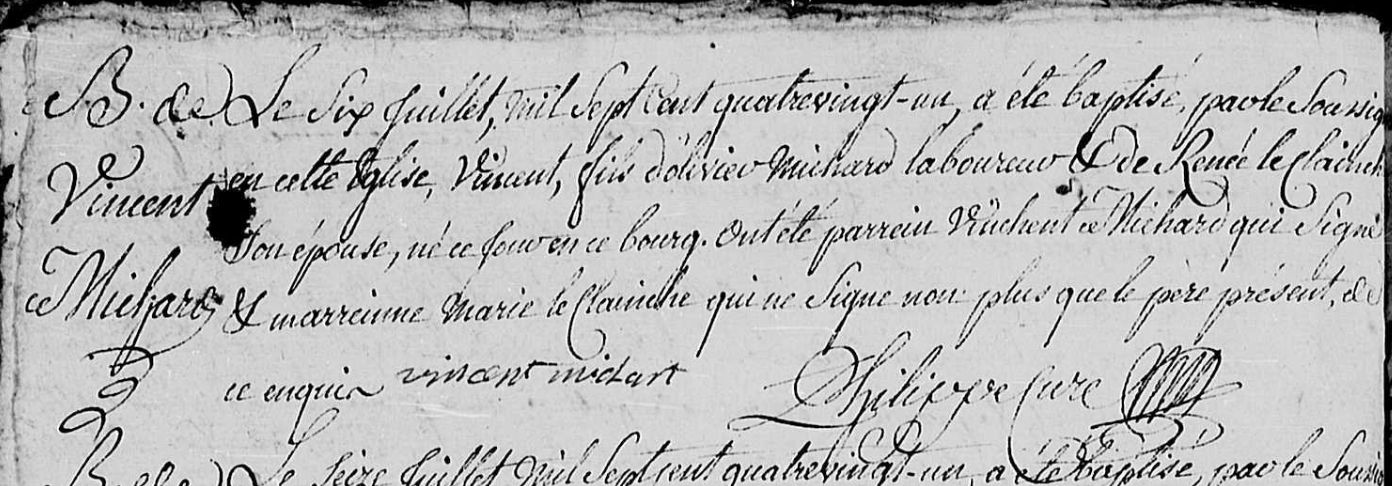 B. de
Vincent
Michard
Le Six Juillet, mil Sept Cent quatrevingt-un, a été baptisé, par le Soussig
en cette Eglise, Vincent, fils d'olivier Michard laboureur & de Renée le Clainch
Son épouse, né ce jour en ce bourg. Ont été parrein Vinchent Michard qui Signe
& marreinne Marie le Clainche qui ne Signe non plus que le père présent, de
ce enquis vincent michart
Philippe Curé
B. de Le Seize Juillet mil Sept cent quatrevingt-un, a été baptisé, par le Soussig